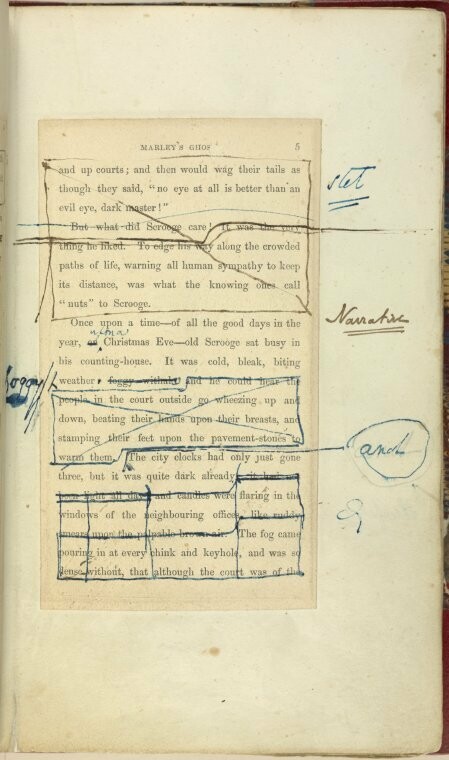 MARLEY'S GHOS 5
and up courts; and then would wag their tails as
though they said, "no eye at all is better than an
evil eye, dark master!"
stet
But what did Scrooge care! It was the very
thing he liked. To edge his way along the crowded
paths of life, warning all human sympathy to keep
its distance, was what the knowing ones call
"nuts" to Scrooge.
Narrative
Once upon a time—of all the good days in the
year, on Christmas Eve—old Scrooge sat busy in
his counting-house. It was cold, bleak, biting
foggy
weather: foggy withal: and he could hear the
people in the court outside go wheezing up and
down, beating their hands upon their breasts, and
stamping their feet upon the pavement-stones to
warm them. The city clocks had only just gone
and
three, but it was quite dark already: it had not
been light all day: and candles were flaring in the
windows of the neighbouring offices, like ruddy
smears upon the palpable brown air. The fog came
pouring in at every chink and keyhole, and was so
dense without, that although the court was of the